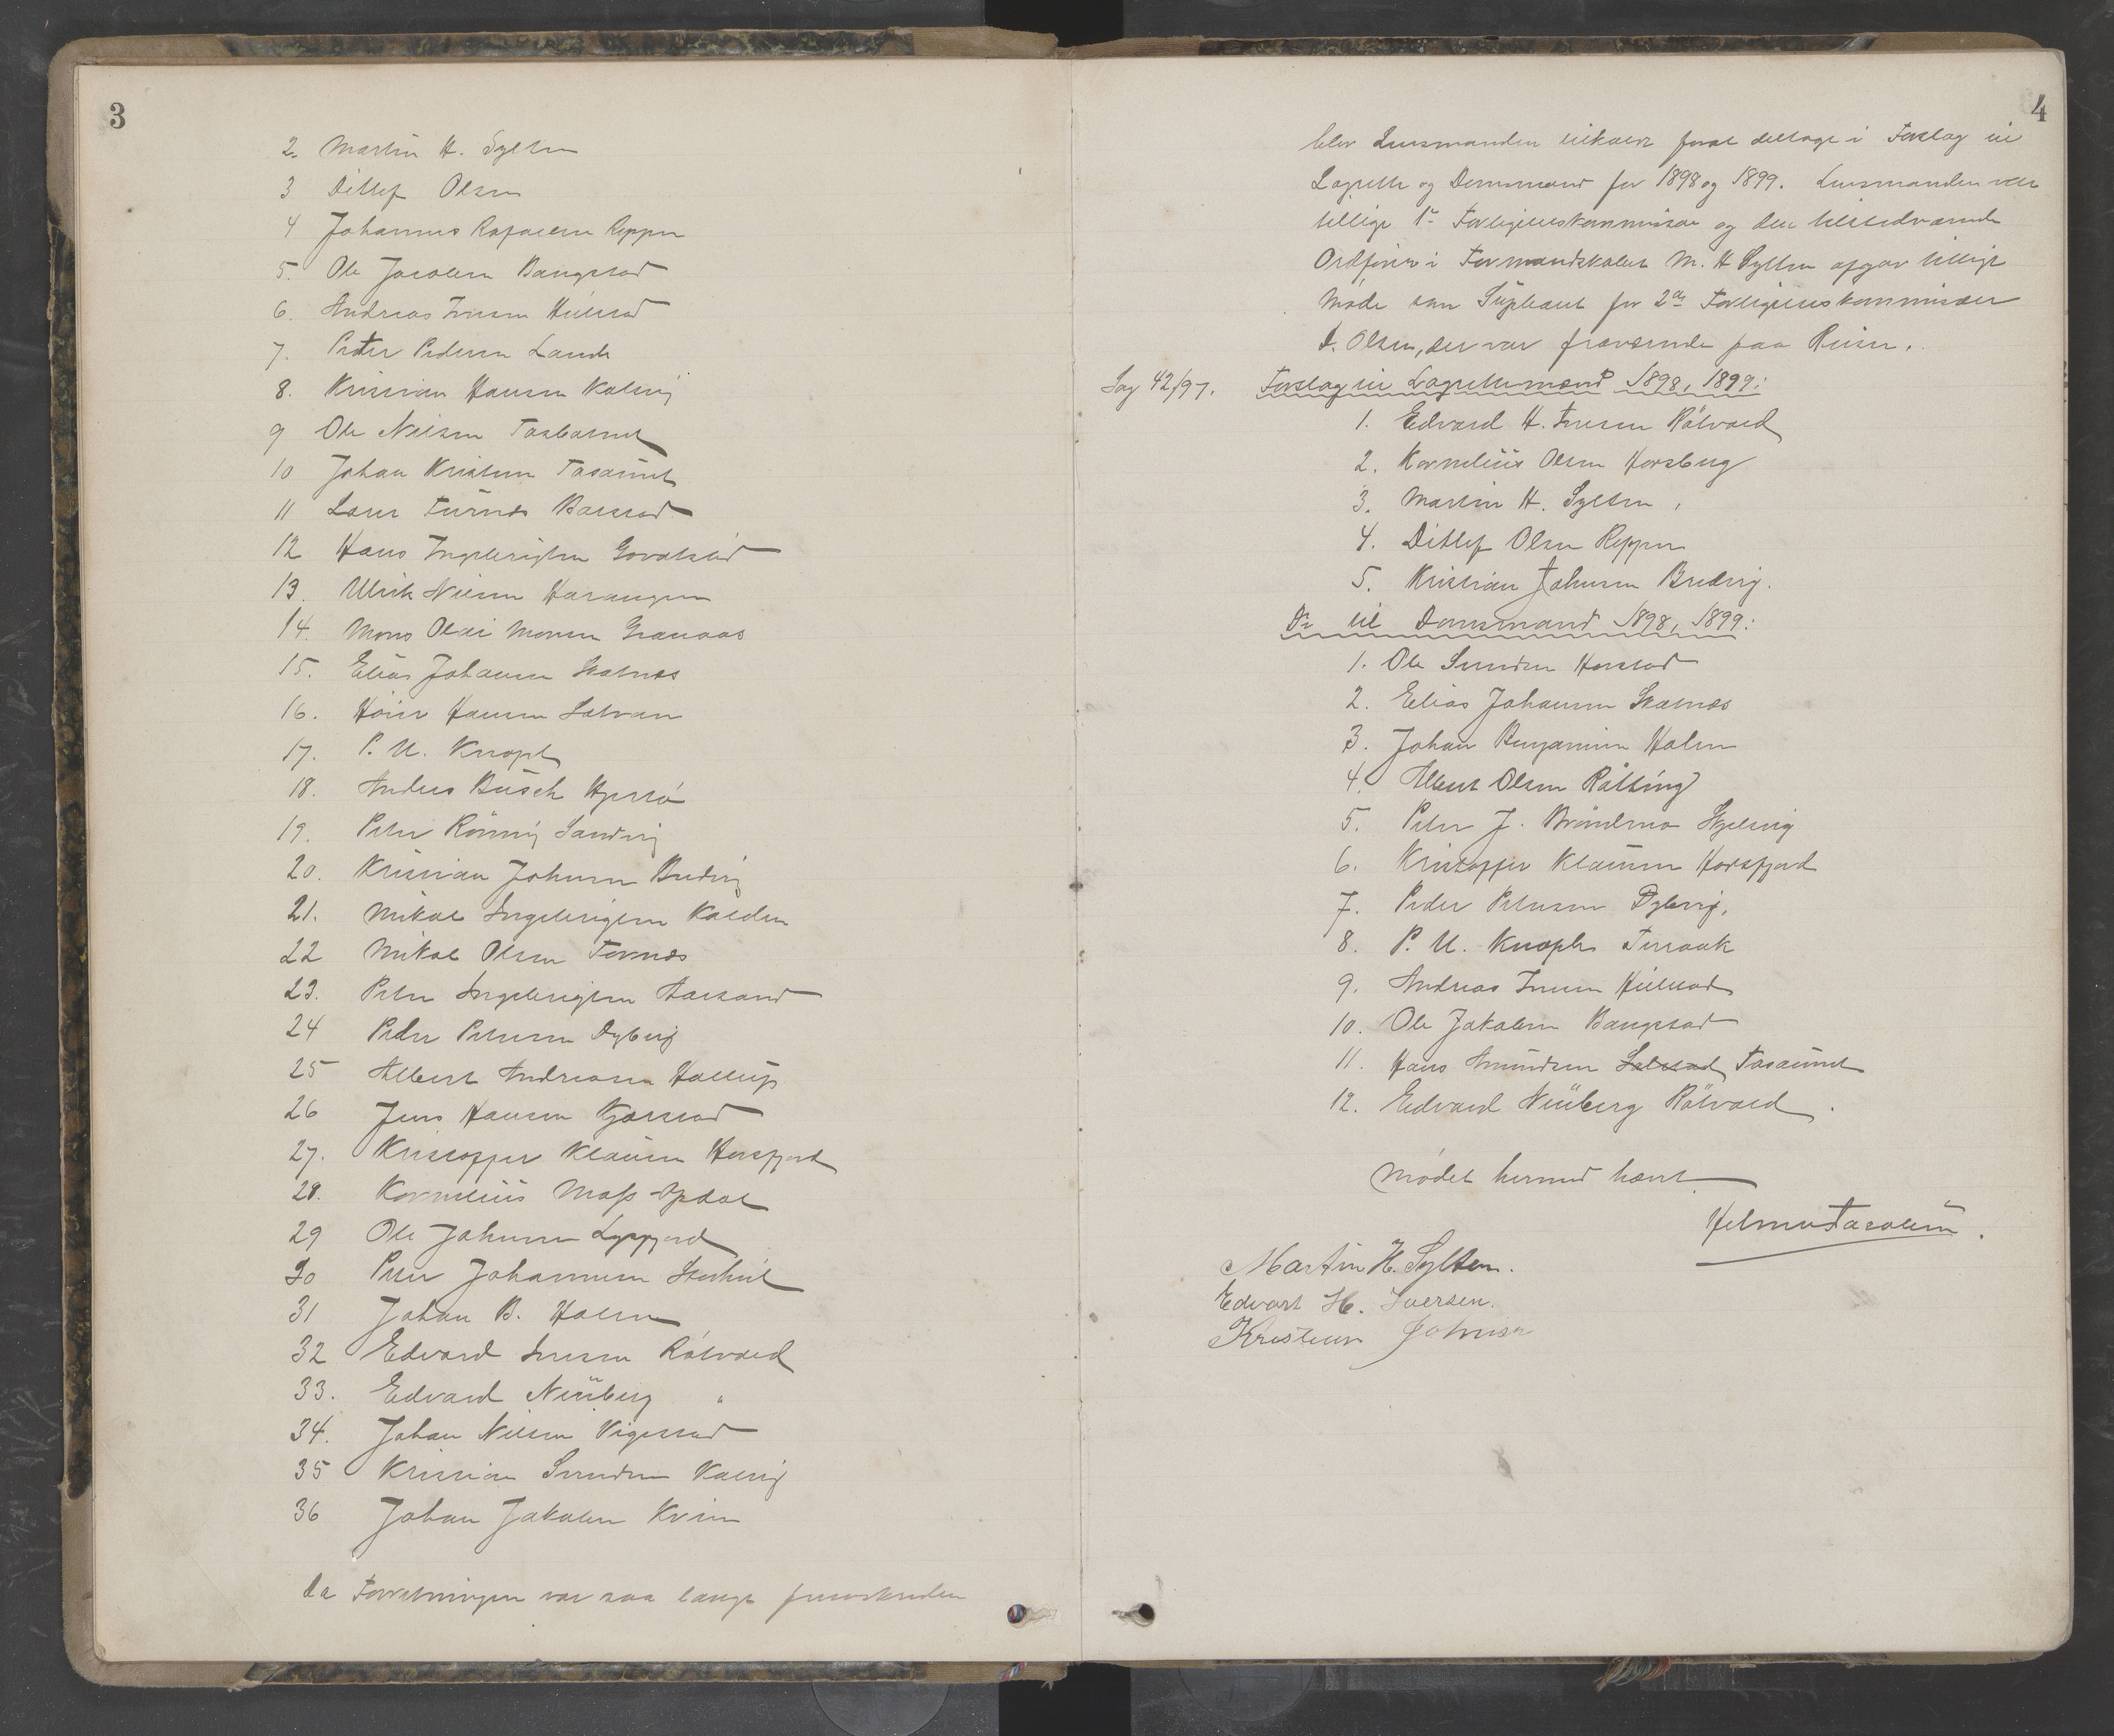 3
2. Martin H. Sylten
3 Ditlef Olsen
4 Johannes Rafaelsen Reppen
5. Ole Jacobsen Bangstad
6. Andreas Iversen Hiilstad
7. Peder Pedersen Lande
8. Kristian Hansen Kalvig
9 Ole Nilsen
10 Johan Kristensen Tosaunet
11 Lars Furnes
12 Hans Ingebrigtsen
13. Ulrik Nilsen Harangen
14. Mons Olai Monsen Granaas
15. Elias Johansen Skatnes
16. Hansen
17. P. U. Knoph
18. Anders Busch
19. Peter Rönnig Sandvig
20. Kristian Johnsen Bredvig
21. Mikal Ingebrigtsen
22 Mikal Olsen Fornes
23. Peter Ingebrigtsen Aarsand
24 Peder Petersen Dybvig
25 Albert Andreasen
26 Jens Hansen
27. Kristoffer Klausen Horsfjord
28. Kornelius Moss Opdal
29 Ole Johnsen
30 Peter Johannesen
31 Johan B. Holm
32 Edvard Iversen Råtvold
33. Edvard Niüberg "
34. Johan Nilsen Vigestad
35 Kristian Svendsen Kalvig
36 Johan Jakobsen
Da Forretningen var saa langt fremskreden
4
blev Lensmanden tilkaldt forat deltage i Forslag til
Lagrette og Domsmænd for 1898 og 1899. Lensmanden var
tillige 1ste Forligelseskommissær og den tilstedværende
Ordfører i Formandskabet M. H Sylten afgav tillige
Møde som Supleant for 2den Forligelseskommissær
D. Olsen, der var fraværende paa Reiser.
Sag 42/97. Forslag til Lagrettemænd 1898, 1899:
1. Edvard H. Iversen Råtvold
2. Kornelius Olsen Horsberg
3. Martin H. Sylten,
4. Ditlef Olsen Reppen
5. Kristian Johnsen Bredvig.
Do til Domsmænd 1898, 1899:
1. Ole Svendsen Horstad
2. Elias Johansen Skatnes
3. Johan Benjamin Holm
4. Albert Olsen Råtting
5. Peter J. Brönlmo
6. Kristoffer Klausen Horsfjord
7. Peder Petersen Dybvig.
8. P. U. Knoph Terraak
9. Andreas Iversen Hiilstad
10. Ole Jakobsen Bangstad
11. Hans Amundsen Tosaunet
12. Edvard Niüberg Råtvold.
Mødet hermed hævet
Helmer Jacobsen.
Martin H. Sylten.
Edvart H. Iversen.
Kristian Johnsen